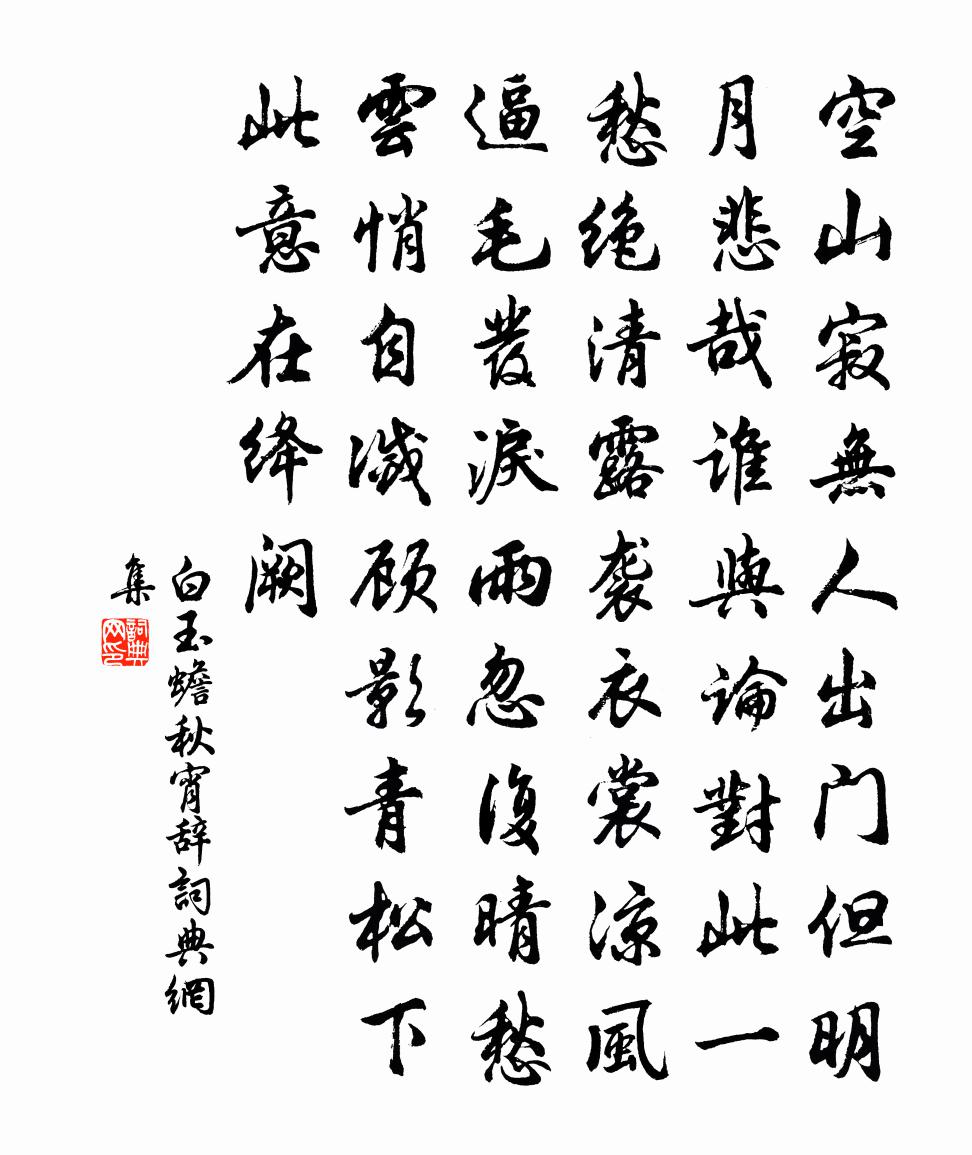 空山寂無人出门但明
月悲哉谁與論對此一
愁绝清露袭衣裳涼風
逼毛发淚雨忽復晴愁
雲悄自滅顾影青松下
此意在绛阙
白玉蟾秋宵辞詞典網
集
詞典
网印